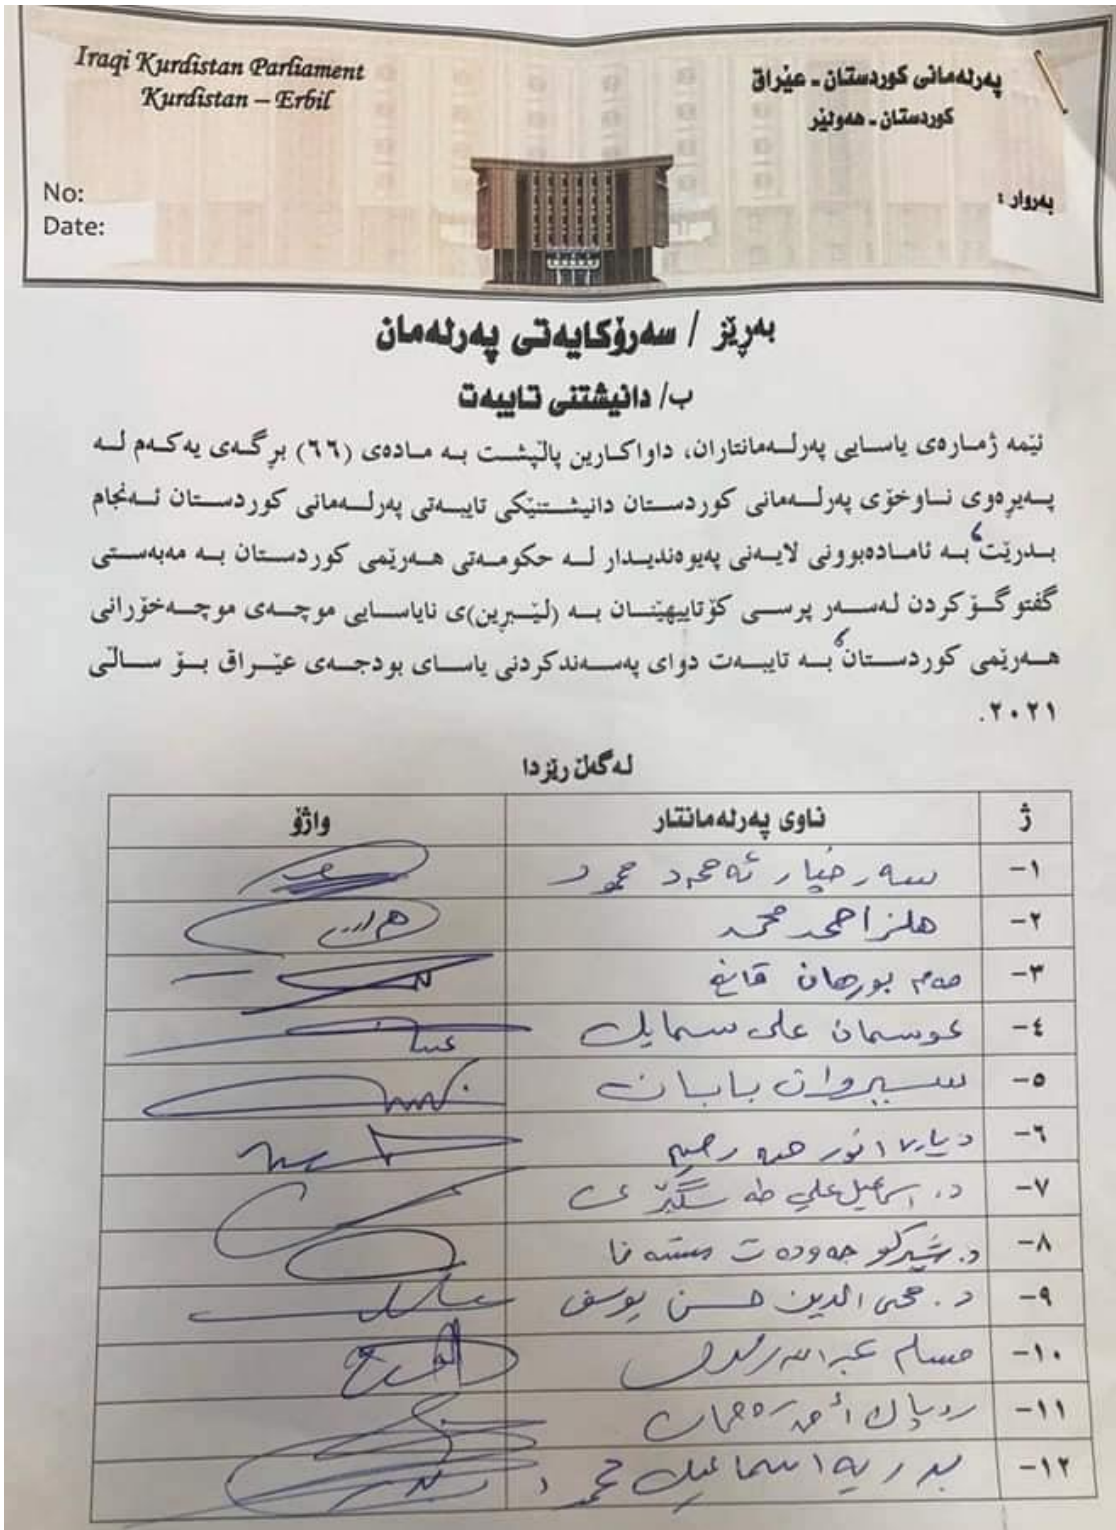 Iraqi Kurdistan Parliament
Kurdistan – Erbil
No:
Date:
پەرلەمانی کوردستان - عێراق
کوردستان - هەولێر
بەروار :
بەڕێز / سەرۆکایەتی پەرلەمان
ب/ دانیشتنی تایبەت
ئێمە ژمارەی یاسایی پەرلەمانتاران، داواکارین پاڵپشت بە مادەی (٦٦) بڕگەی یەکەم لە
پەیڕەوی ناوخۆی پەرلەمانی کوردستان دانیشتنێکی تایبەتی پەرلەمانی کوردستان ئەنجام
بدرێت، بە ئامادەبوونی لایەنی پەیوەندیدار لە حکومەتی هەرێمی کوردستان بە مەبەستی
گفتوگۆکردن لەسەر پرسی کۆتاییهێنان بە (لێبڕین)ی نایاسایی موچەی موچەخۆرانی
هەرێمی کوردستان، بە تایبەت دوای پەسەندکردنی یاسای بودجەی عێراق بۆ ساڵی
٢٠٢١.
لەگەڵ رێزدا
ژ ناوی پەرلەمانتار واژۆ
١- ئەحمەد محمود
٢- احمد محمد
٣- بورهان قانع
٤- عوسمان علی سمایل
٥- سیروان بابان
٦- انور رحیم
٧- د. اسماعیل علي طه
٨- د. شێرکۆ جەودەت مستەفا
٩- د. محی الدین حسن یوسف
١٠- مسلم عبدالله
١١-
١٢- بدریە اسماعیل محمود